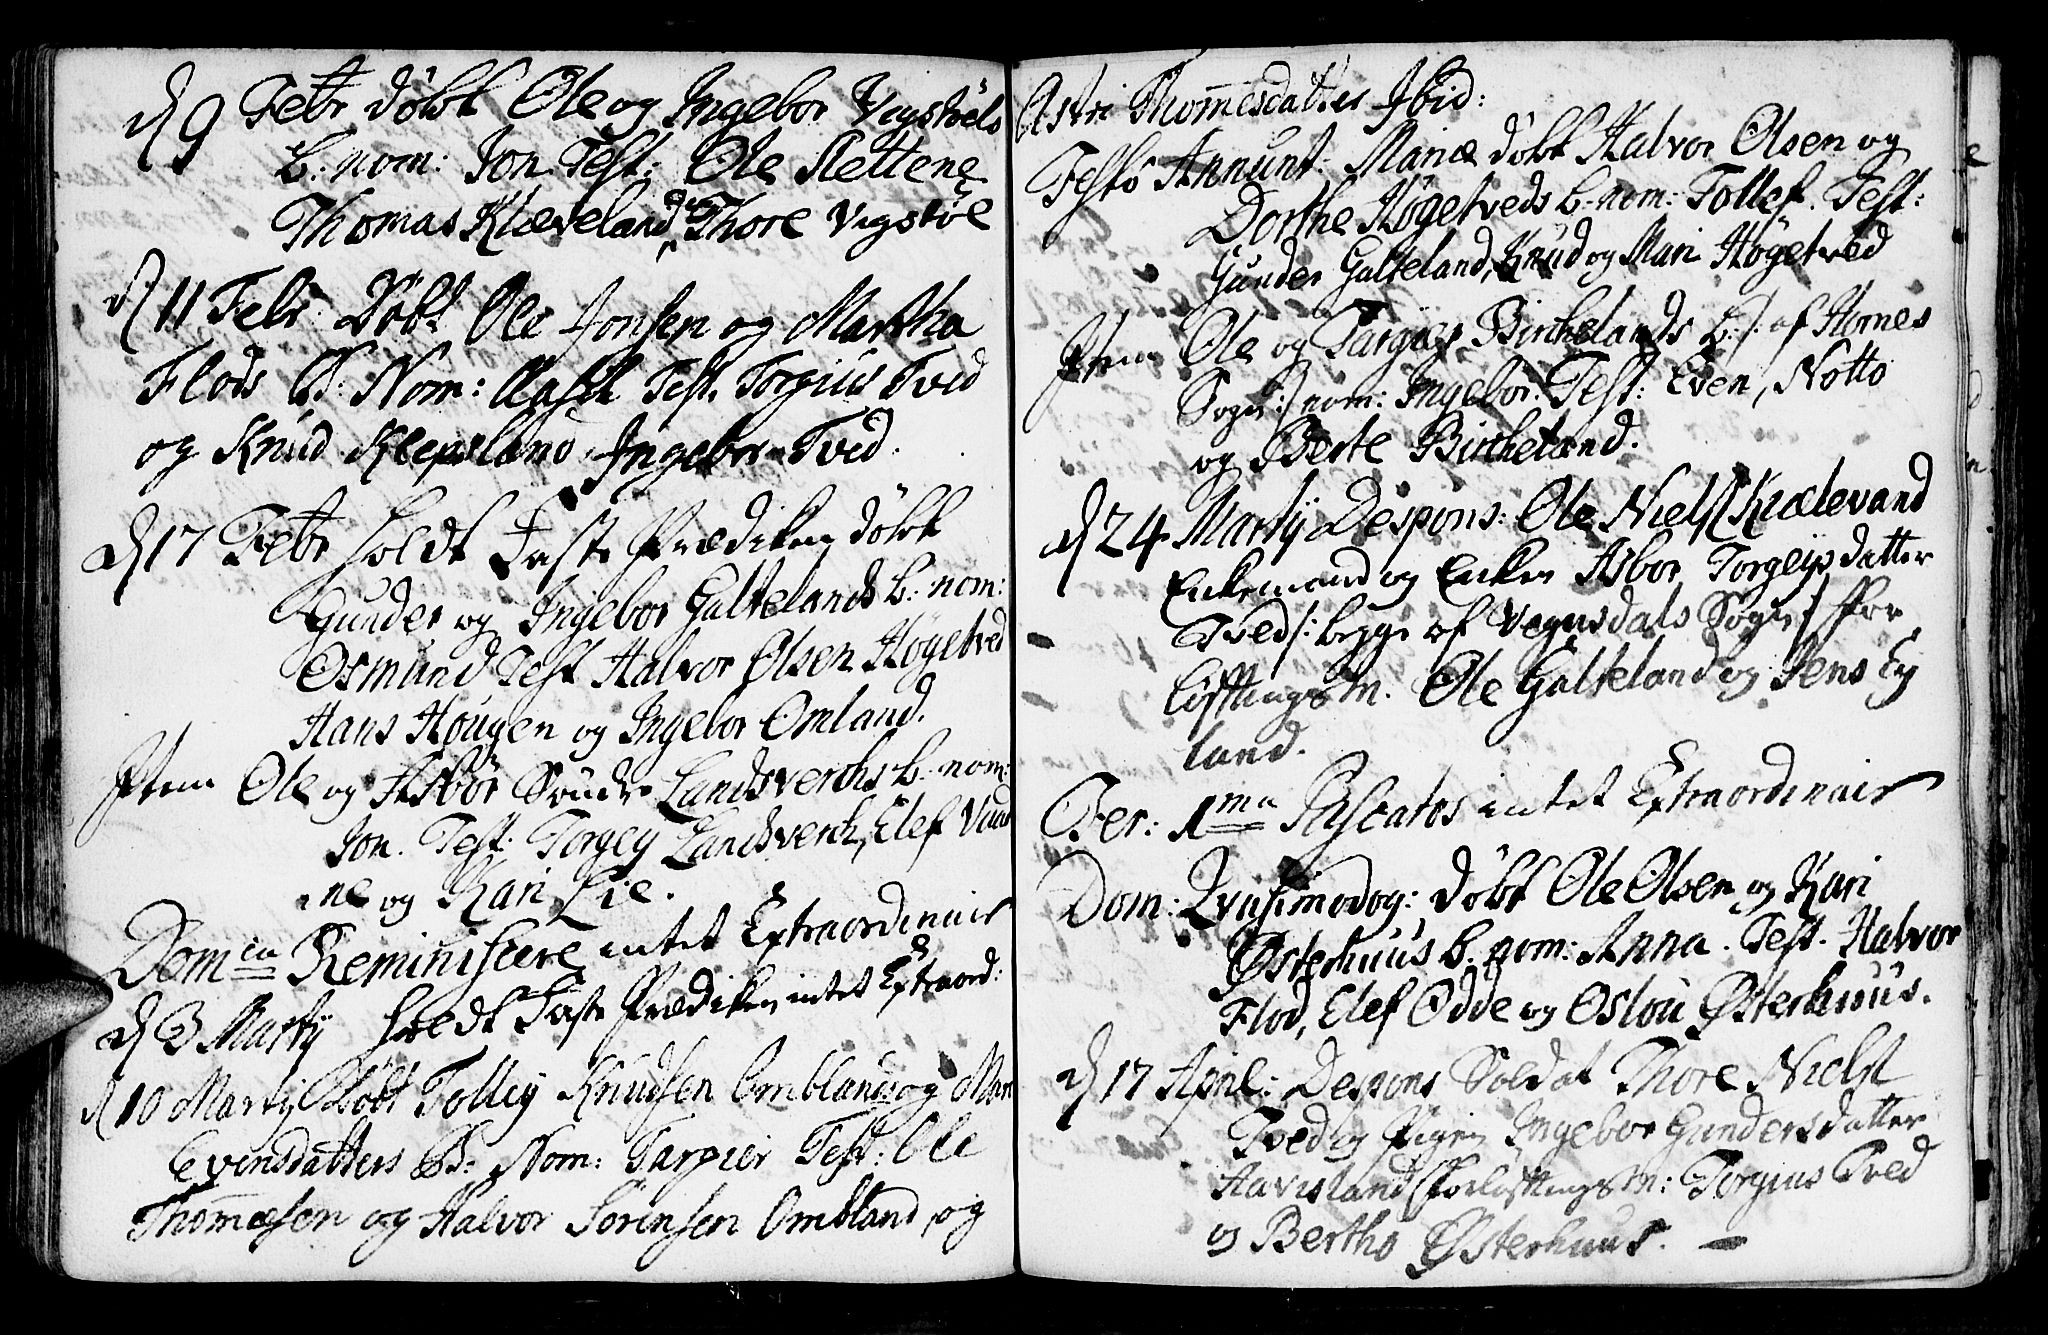 d 9 Febr døbt Ole og Ingebor Vigstöls
b: nom: Jon. Test: Ole Slettene
Thomas Klæveland, Thore Vigstöl
d 11 Febr: Döbt Ole Jonsen og Martha
Flods B: Nom: Aase Test. Torgius Tved
og Knud Klepsland, Ingebor Tved.
d 17 Febr holdt Faste Prædiken döbt
Gunder og Ingebor Galtelands b: nom:
Osmund Test Halvor Olsen Høgetved
Hans Hougen og Ingebor Omland.
Item Ole og Asbör Landsverchs b: nom:
Jon. Test: Torgey Landsverch, Elef
ne og Kari Lie.
Dom ca Reminiscere intet Extraordinair
d 3 Martij holdt Faste Prædiken intet Extraord:
d 10 Martij Döbt Tolley Knudsen Omblands og Mari
Evensdatters B: Nom: Targier Test: Ole
Thommæsen og Halvor Sörensen Ombland, og
Astri Thommesdatter Ibid:
Festo Annunt: Mariæ döbt Halvor Olsen og
Dorthe Høgetveds b. nom: Tollef. Test:
Gunder Galteland, Knud og Mari Høgetved
Item Ole og Targier Birchelands b: /: af Hornes
Sogn :/ nom: Ingebor. Test: Even, Notto
og Berte Bircheland.
d 24 Martij Despons: Ole Niels. Kiælevand
Enkemand og Enken Asbor Torgeysdatter
Tved /: begge af Vegusdals Sogn :/ For
løftningsm. Ole Galteland og Jens Ey
land.
Fer: 1ma Pascatos intet Extraordinair
Dom: Qvasimodog: döbt Ole Olsen og Kari
Østerhuus b. nom: Anna. Test. Halvor
Flod, Elef Odde og Oslou Østerhuus.
d 17 April: Despons Soldat Thore Nielss
Tved og Pigen Ingebor Gundersdatter
Havisland, Forløftningsm: Torgius Tved
og Bertho Østerhuus. —